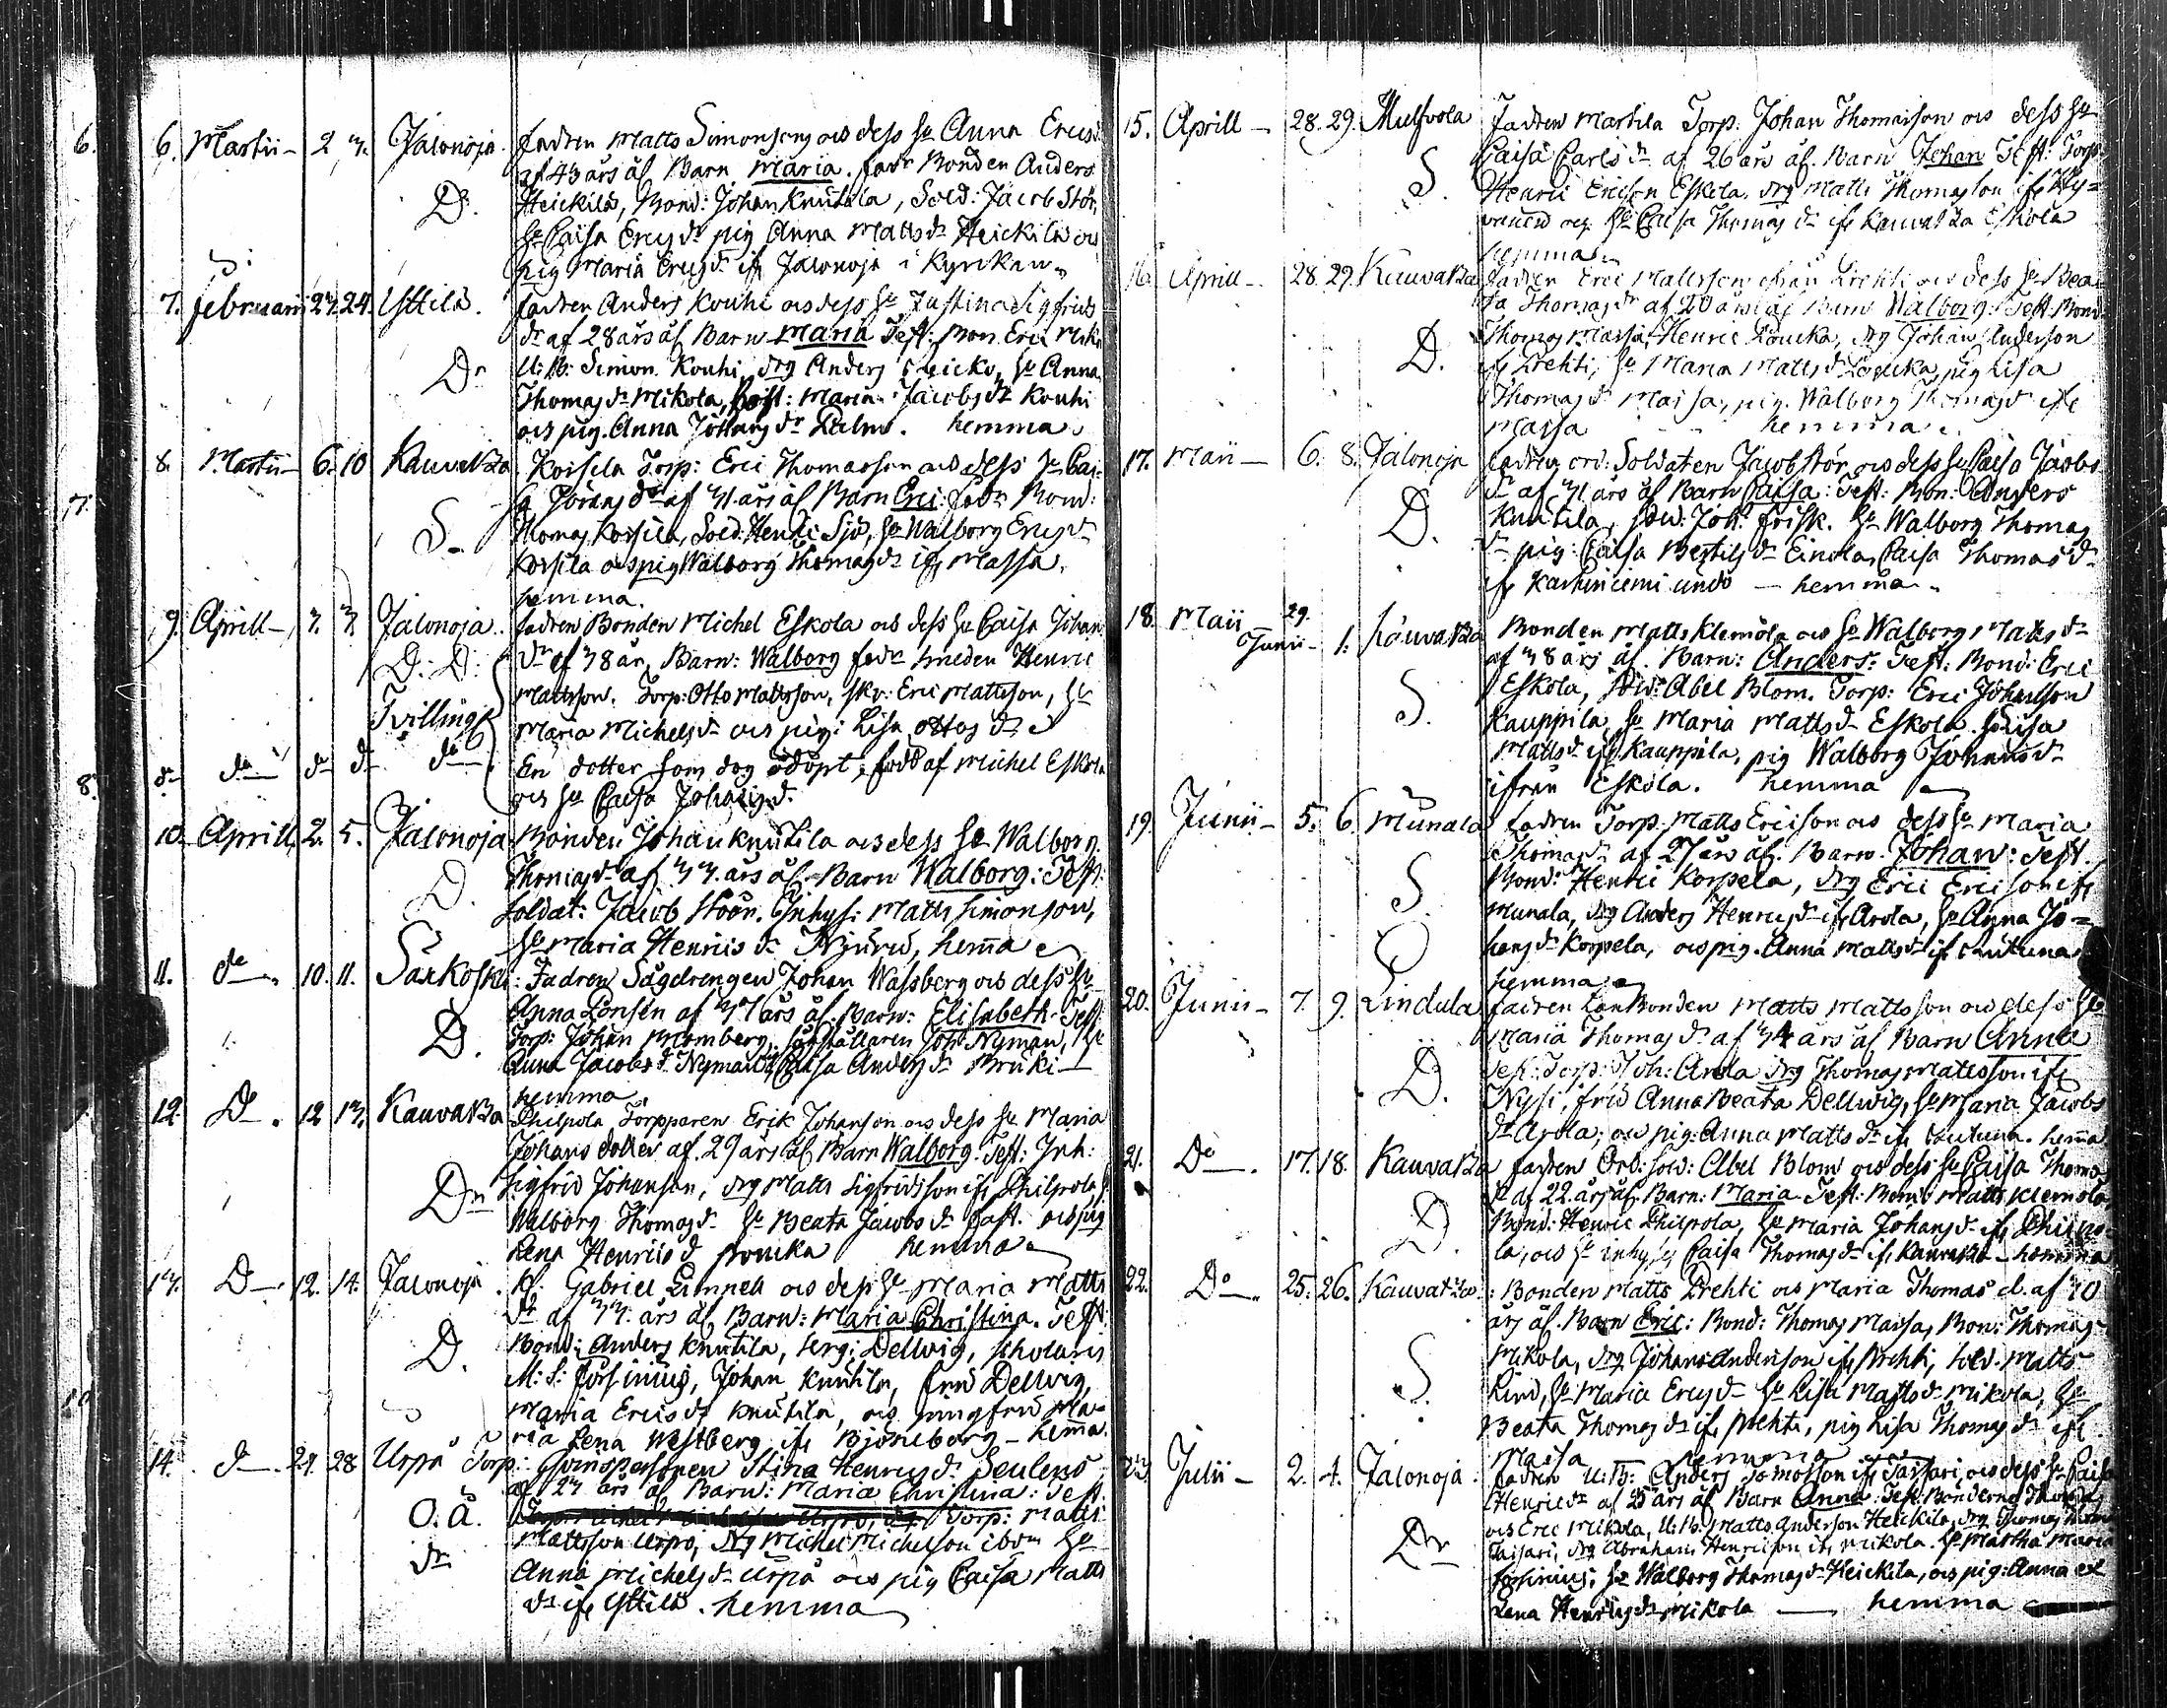 6. Martii - 2 3. Jalonoja. fadren Matts Simonsson och dess hu Anna Ericsd
af 43 års åld. Barn Maria. fadr Bonden Anders
D. Heickilä, Bond: Johan Knutila, Sold: Jacob Stör,
hu Caisa Ericsdr pig Anna Mattsdr Heickilä och
pig Maria Ericsdr ifr Jalonoja i Kyrckan.
7. februarii 23. 24. Ysttilä. fadren Anders Kouhi och dess hu Justina Sigfrids
dr af 28 års åld Barn Maria Test: Bon. Eric
Dr U:B: Simon Kouhi, drg Anders, hu Anna
Thomasdr Mikola, Maria Jacobsdr Kouhi
och pig. Anna Johansdr Palmu. hemma.
8. Martii - 6. 10 Kauvatza Korsila Torp: Eric Thomasson och dess hu Cai-
sa Göransdr af 31 års åld Barn Eric. fadr Bond:
S. Thomas Korsila, Sold Henric Sjö, hu Walborg Ericsdr
Korsila och pig Walborg Thomasdr ifr Massa.
hemma.
9. Aprill - 3. 3. Jalonoja. fadren Bonden Michel Eskola och dess hu Caisa Johans
D: D: dr af 38 år, Barn: Walborg fadr smeden Henric
Mattsson. Torp: Otto Mattsson, Eric Mattsson, hu
Tvilling Maria Michelsdr och pig: Lisa Ottosdr
do do do do do En dotter som dog odöpt, född af Michel Eskola
och hu Caisa Johansd.
10. Aprill 2. 5. Jalonoja Bonden Johan Knutila och dess hu Walborg
Thomasdr af 33. års åld. Barn Walborg: Test:
D. Soldat: Jacob Stöör. Inhys: Matts Simonson,
hu Maria Henricsdr, hemma
11. do. 10. 11. Säxkoski: Fadren Sågdrengen Johan Wassberg och dess hu
Anna Lönsén af 37 års åld. Barn: Elisabeth. Test
D. Torp: Johan Momberg, Joh: Nyman, hu
Anna Jacobsd Nyman Caisa Andersdr Bruki
hemma
12. Do. 12 13. Kauvatza Philpola Torpparen Erik Johanson och dess hu Maria
Johans dotter af. 29 års åld Barn Walborg. Test: Inh:
Dr Sigfrid Johanson, drg Matts Sigfridsson ifr Philpola
Walborg Thomasdr hu Beata Jacobsdr och pig
Lena Henricsd hemma
13. Do. 12. 14. Jalonoja. Gabriel Linnell och dess hu Maria Matts
dr af 33. års åld Barn: Maria Christina. Test:
D. Bond: Anders Knutila, Serg: Dellwig, Scholaris
M: S: Forsinius, Johan Knutila, fru Dellwig,
Maria Ericsdr Knutila, och jungfru Ma-
ria Lena Westberg ifr Björneborg - hema.
14. do. 27. 28 Urpå Torp: Qvinspersonen Stina Henricsdr
af 23 års åld Barn: Maria Christina: Test.
O. Ä. Torp: Matts
dr Mattsson Urpo, drg Michel Michelson ibdm hu
Anna Michelsdr Urpå och pig Caisa Matts
dr ifr Ysttilä. hemma
15. Aprill - 28. 29. fadren Martila Torp: Johan Thomasson och dess hu
Caisa Carlsdr af 26 års åld. Barn Johan Test: Torp
S. Henric Ericson Eskola. drg Matts Thomasson ifr
och hu Caisa Thomasdr ifr Kauvatza Eskola
hemma
16. Aprill - 28. 29. Kauvatza fadren Eric Mattsson ifrån Prehti och dess hu Bea-
ta Thomasdr af 20 års åld Barn Walborg. Test. Bond
Thomas Massa, Henric Loucka, drg Johan Anderson
D. ifr Prehti, hu Maria Mattsdr Loucka, pig Lisa
Thomasdr Massa, pig. Walborg Thomasdr ifr
Massa hemma.
17. Maii - 6. 8. Jalonoja fadren ord: Soldaten Jacob Stör och dess hu Caisa Jacobs
dr af 31 års åld Barn Caisa: Test: Bon: Anders
D. Knutila, Sold: Joh: Frisk. hu Walborg Thomas
dr pig: Caisa Bertilsdr Einola, Caisa Thomasdr
ifr Karhiniemi - hemma.
18. Maii 29. Junii - 1. Kouvatza Bonden Matts Klemola och hu Walborg Mattsdr
af 38 års åld. Barn: Anders: Test: Bond: Eric
S. Eskola, Sold: Abel Blom. Torp: Eric Johansson
Kauppila, hu Maria Mattsdr Eskola. hu Lisa
Mattsdr ifr Kauppila, pig Walborg Johansdr
ifrån Eskola. hemma
19. Junii - 5. 6. Munala fadren Torp: Matts Ericson och dess hu Maria
Thomasdr af 27 års åld. Barn. Johan: Test.
S. Bond: Henric Korpela, drg Eric Ericson ifr
Munala, drg Anders Henricsd ifr Arola, hu Anna Jo-
hansdr Korpela, och pig. Anna Mattsdr ifr
hemma
20. Junii - 7. 9. Lindula fadren Bonden Matts Mattsson och dess hu
Maria Thomasdr af 34 års åld Barn Anna
D. Test: Torp: Joh: Arola drg Thomas Mattsson ifr
fru Anna Beata Dellwig, hu Maria Jacobs
dr Arola, och pig: Anna Mattsdr ifr. hema
21. Do. 17. 18. Kauvatza fadren Ord: Sold: Abel Blom och dess hu Caisa Thomas
dr af 22. års åld. Barn: Maria Test: Bond Matts Klemola
D. Bond: Henric Philpola, hu Maria Johansdr ifr Philpo-
la, och hu inhys Caisa Thomasdr ifr Kauvatza - hemma
22. Do. 25. 26. Kauvatza: Bonden Matts Prehti och Maria Thomas d. af 30
års åld. Barn Eric: Bond: Thomas Massa, Bon: Thomas
S. Mikola, drg Johan Anderson ifr Prehti, Sold. Matts
Lind, hu Maria Ericsdr hu Lisa Mattsdr Mikola, hu
Beata Thomasdr ifr Prehti, pig Lisa Thomasdr ifr
Massa hemma
23. Julii - 2. 4. Jalonoja. fadren U:B: Anders ifr Taisari och dess hu Caisa
Henricdr af 25 års åld Barn Anna: Test: Bönderne Thomas
och Eric Mikola, U:B: Matts Anderson Heickilä, drg Thomas
Dr Taisari, drg Abraham Henricson ifr Mikola. hu Martha Maria
Forsinius, hu Walborg Thomasdr Heickilä, och pig: Anna
Lena Henricsdr Mikola - hemma
6.
7.
8.
10